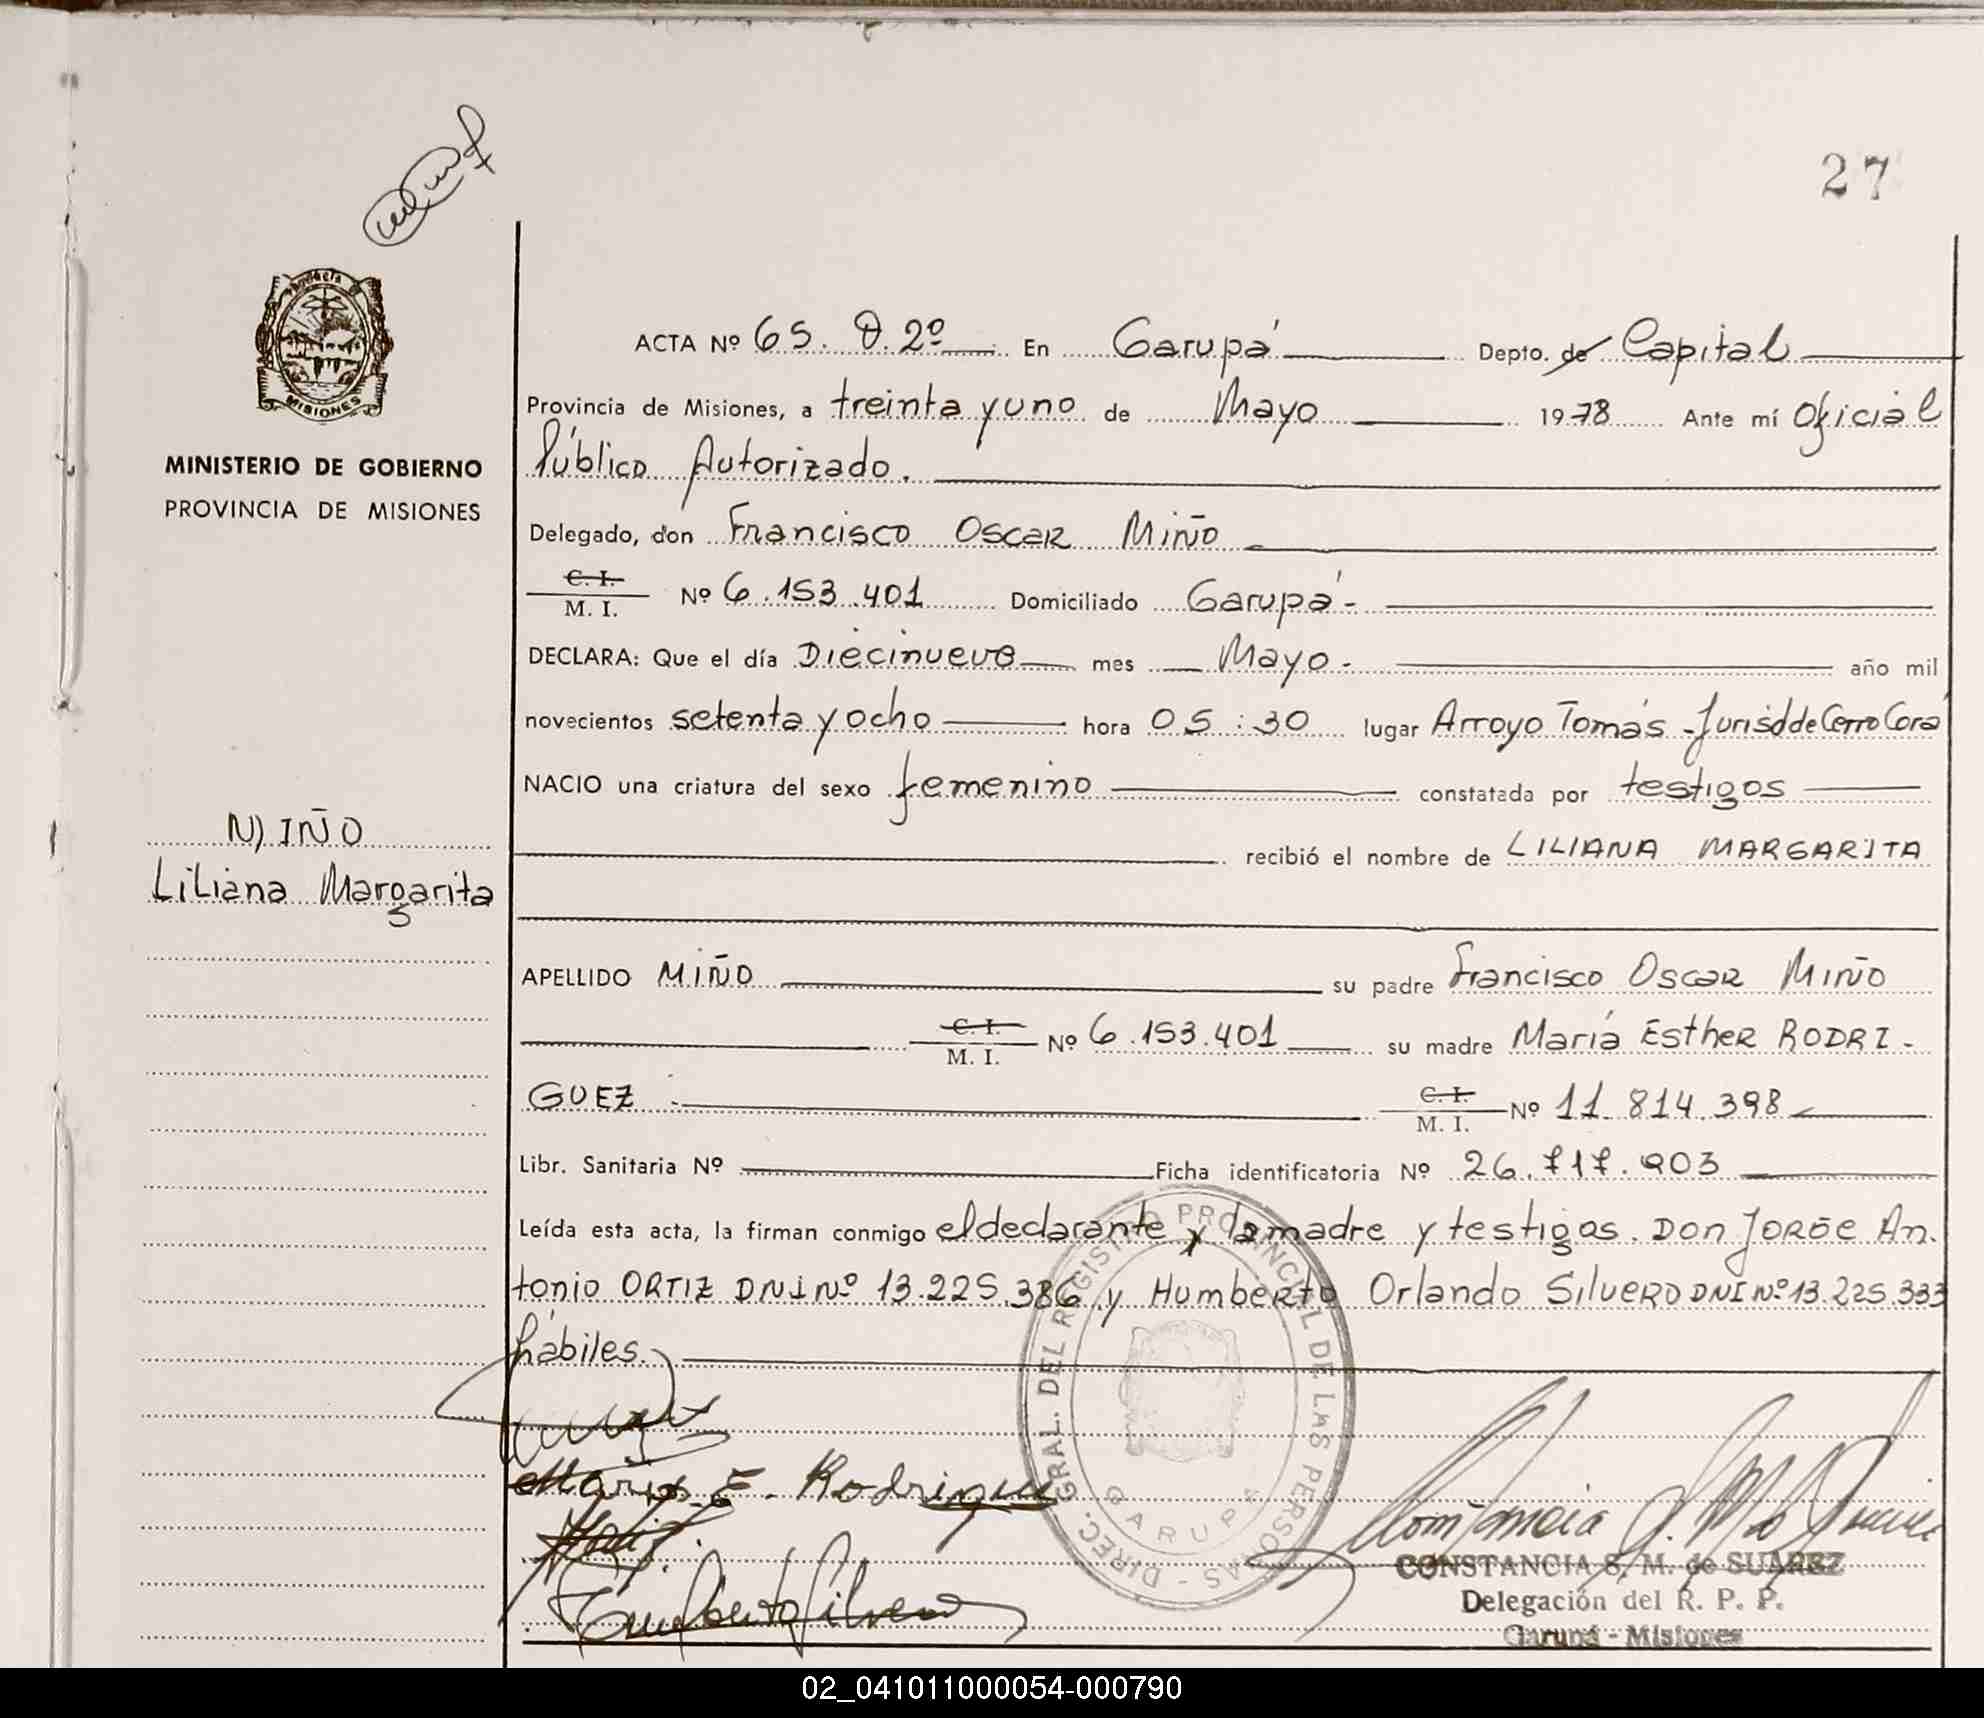 27
Provincia de
MISIONES
MINISTERIO DE GOBIERNO
PROVINCIA DE MISIONES
ACTA Nº 65. D. 2º En Garupá Depto. de Capital
Provincia de Misiones, a treinta y uno de Mayo 1978 Ante mí Oficial
Público Autorizado.
Delegado, don Francisco Oscar Miño
C. I.
M. I. Nº 6.153.401 Domiciliado Garupá-
DECLARA: Que el día Diecinueve mes Mayo- año mil
novecientos setenta y ocho hora 05:30 lugar Arroyo Tomás - Jurisd de Cerro Corá
NACIO una criatura del sexo femenino constatada por testigos
MIÑO
recibió el nombre de LILIANA MARGARITA
Liliana Margarita
APELLIDO MIÑO su padre Francisco Oscar Miño
C. I.
M. I. Nº 6.153.401 su madre María Esther RODRI-
GUEZ C. I.
M. I. Nº 11.814.398
Libr. Sanitaria Nº Ficha identificatoria Nº 26.717.903
Leída esta acta, la firman conmigo el declarante y la madre y testigos. Don Jorge An-
tonio ORTIZ DNI Nº 13.225.386 y Humberto Orlando Silvero DNI Nº 13.225.333
hábiles.
María E. Rodriguez
Humberto Silvero
DIREC. GRAL. DEL REGISTRO PROVINCIAL DE LAS PERSONAS -
GARUPA
CONSTANCIA S. M. de SUAREZ
Delegación del R. P. P.
Garupá - Misiones
02_041011000054-000790